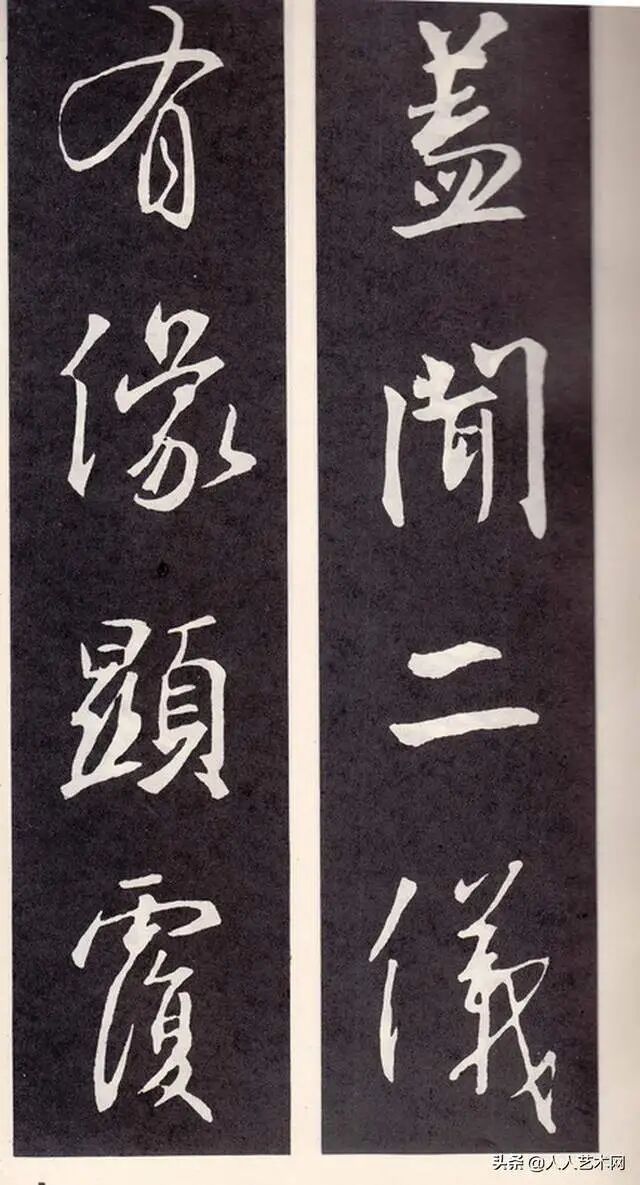 盖聞二儀
有像顯覆
头条@人人艺术网